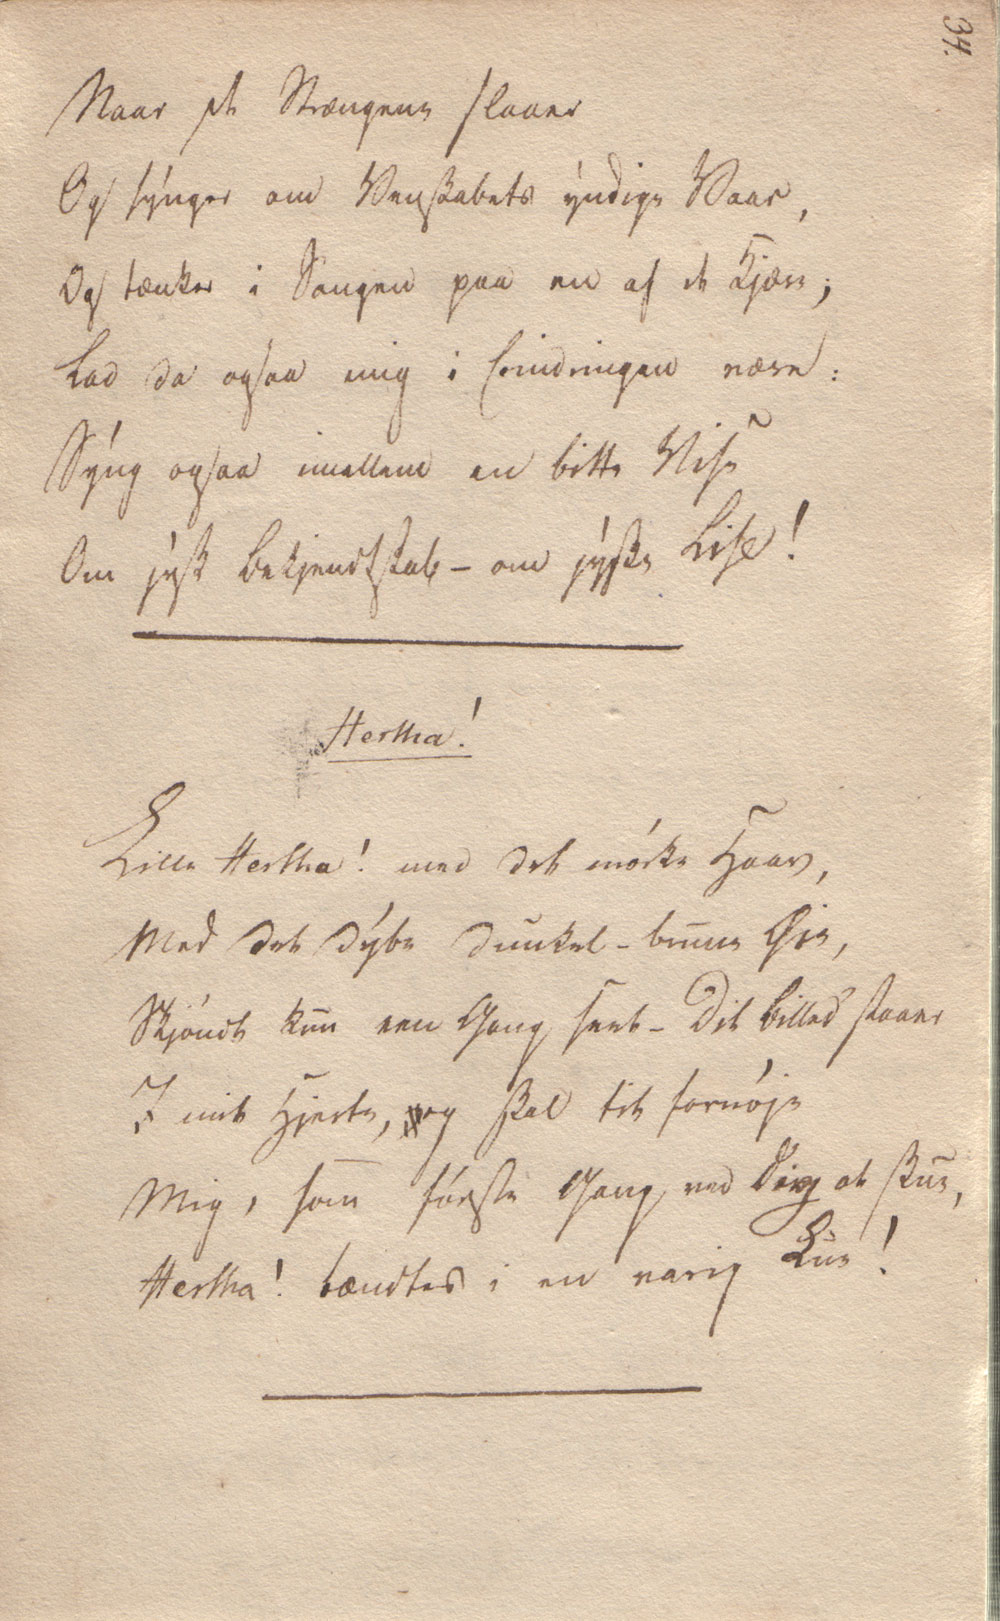 34.
Naar på Strængene slaaer
Og synger om Venskabets yndige Vaar,
Og tænker i Sangen paa en af de Kjære;
Lad da ogsaa mig i Erindringen være:
Syng ogsaa imellem en bitte Vise
Om jysk Bekjendtskab – om jyske Lise!
Hertha!
Lille Hertha! med det mörke Haar,
Med det dybe dunkel-brune Øie,
Skjöndt kun een Gang seet – Dit Billed staaer
I mit Hjerte, og skal tit fornöje
Mig, som förste Gang, ved Dig at skue,
Hertha! tændtes i en varig Lue!